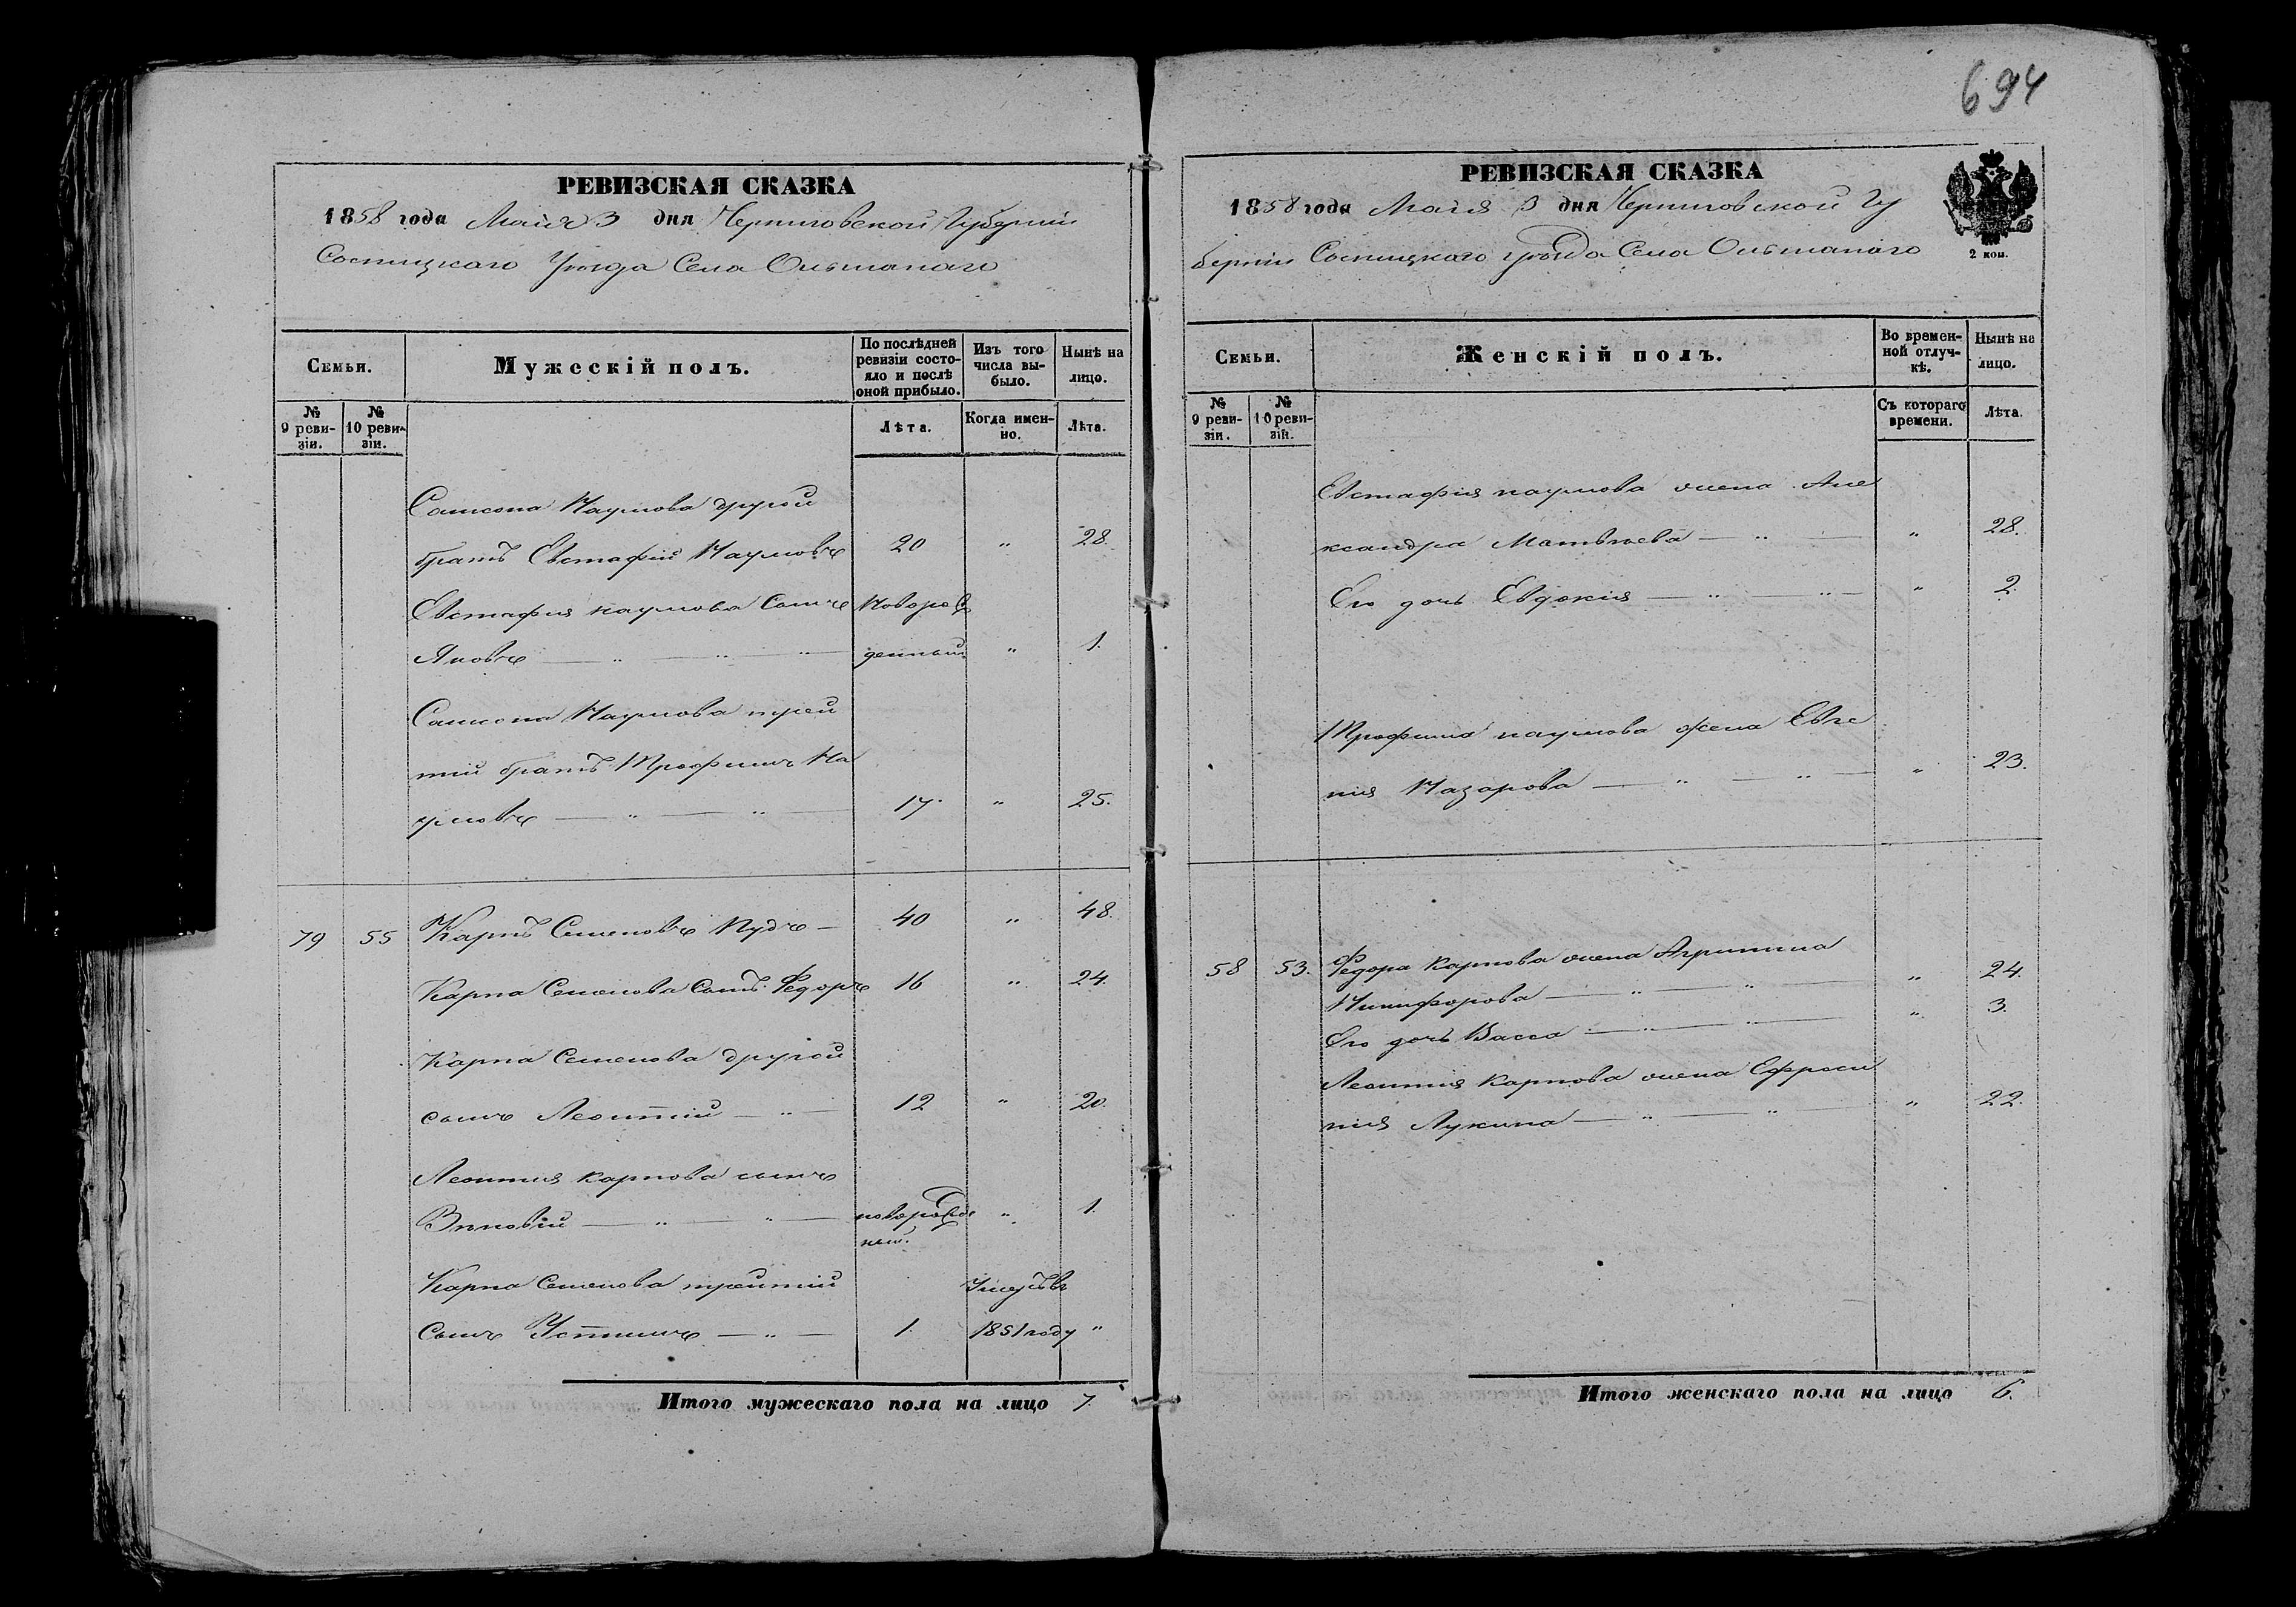 694
РЕВИЗСКАЯ СКАЗКА
1858 года Мая 3 дня Черниговской Губернiи
Сосницкаго Уѣзда Села Ольшанаго
Семьи.
Мужескій полъ.
По послѣдней ревизіи состояло и послѣ оной прибыло.
Изъ того числа выбыло.
Нынѣ на лицо.
№ 9 ревизіи.
№ 10 ревизіи.
Лѣта.
Когда именно.
Лѣта.
Самсона Наумова другой
братъ Евстафій Наумовъ 20 " 28.
Евстафія Наумова сынъ Новорож
Яковъ — " — " — " — денный " 1.
Самсона Наумова трей
тій братъ Трофимъ На
умовъ — " — " — 17. " 25.
79 55 Карпъ Семеновъ Пудъ — 40 " 48.
Карпа Семенова сынъ Федоръ 16 " 24.
Карпа Семенова другой
сынъ Леонтій — " — 12 " 20.
Леонтія Карпова сынъ
Зѣновій — " — " — новорожде " 1.
ный.
Карпа Семенова трейтій Умеръ въ
сынъ Устимъ — " — 1. 1851 году "
Итого мужескаго пола на лицо 7.
РЕВИЗСКАЯ СКАЗКА
1858 года Мая 3 дня Черниговской Гу
берніи Сосницкаго уѣзда Села Ольшанаго
2 коп.
Семьи.
Женскій полъ.
Во временной отлучкѣ.
Нынѣ на лицо.
№ 9 ревизіи.
№ 10 ревизіи.
Съ котораго времени.
Лѣта.
Евстафія Наумова жена Але
ксандра Матвѣева — " — " 28.
Его дочь Евдокія — " — " — " 2.
Трофима Наумова жена Евге
нія Назарова — " — " — " 23.
58 53. Федора Карпова жена Агрипина
Никифорова — " — " — " 24.
Его дочь Васса — " — " — " 3.
Леонтія Карпова жена Ефроси
нія Лукина — " — " — " 22.
Итого женскаго пола на лицо 6.